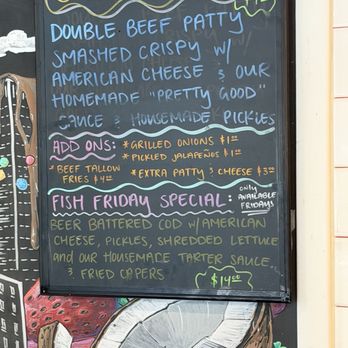 DOUBLE BEEF PATTY
SMASHED CRISPY W/
AMERICAN CHEESE & OUR
HOMEMADE "PRETTY GOOD"
SAUCE & HOUSEMADE PICKLES
ADD ONS: *GRILLED ONIONS $1.00
*PICKLED JALAPEÑOS $1.00
*BEEF TALLOW
FRIES $4.00
*EXTRA PATTY & CHEESE $3.00
FISH FRIDAY SPECIAL:
ONLY
AVAILABLE
FRIDAYS!
BEER BATTERED COD W/ AMERICAN
CHEESE, PICKLES, SHREDDED LETTUCE
AND OUR HOUSEMADE TARTER SAUCE
& FRIED CAPERS
$14.00